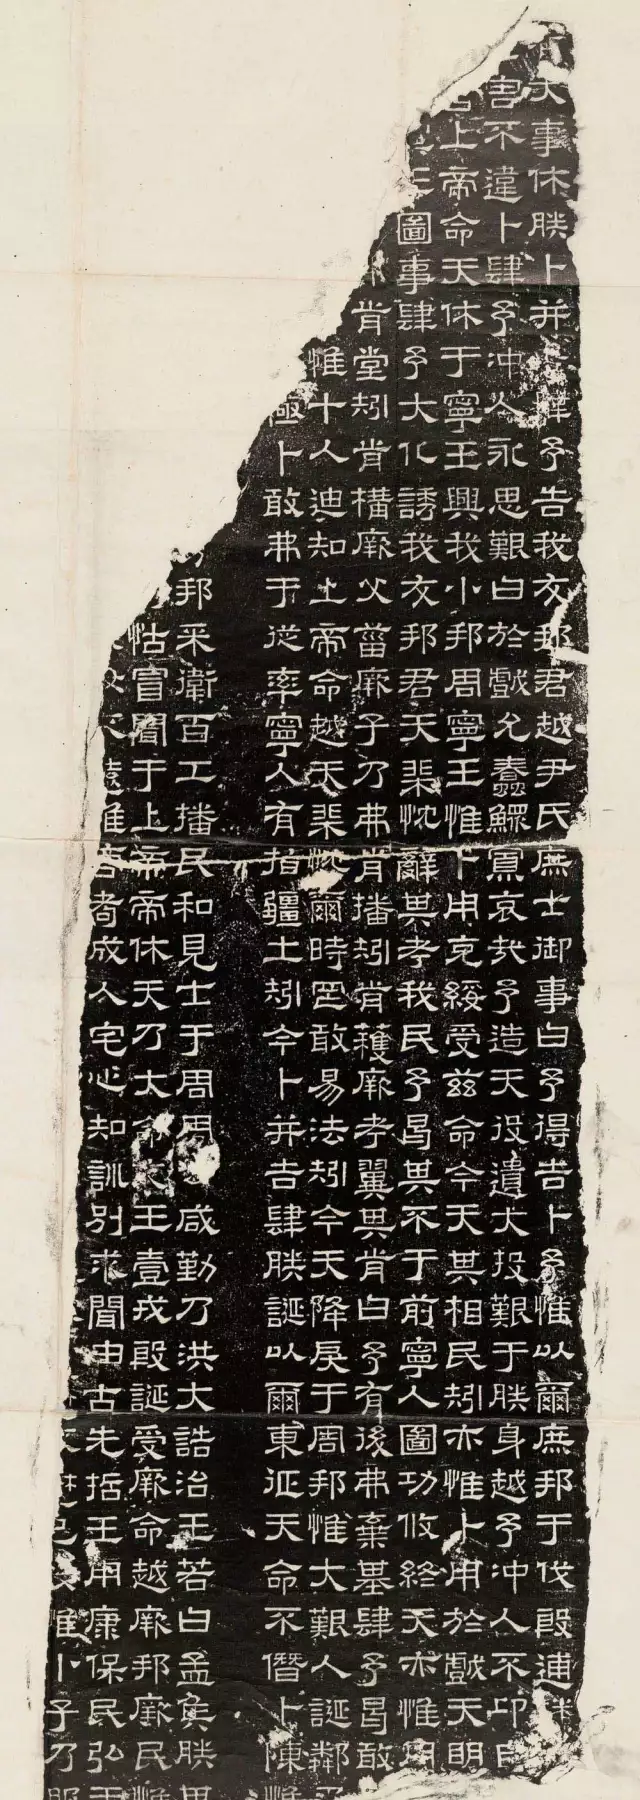 大事休朕卜并予告我友邦君越尹氏庶士御事曰予得吉卜予惟以爾庶邦于伐殷逋
害不違卜肆予沖人永思艱曰於戲允蠢鰥寡哀哉予造天役遺大投艱于朕身越予沖人不卬自
上帝命天休于寧王興我小邦周寧王惟卜用克綏受茲命今天其相民矧亦惟卜用於戲天明
圖事肆予大化誘我友邦君天棐忱辭其考我民予曷其不于前寧人圖功攸終天亦惟用
肯堂矧肯構厥父菑厥子乃弗肯播矧肯穫厥考翼其肯曰予有後弗棄基肆予曷敢
惟十人迪知上帝命越天棐忱爾時罔敢易法矧今天降戾于周邦惟大艱人誕鄰
極卜敢弗于從率寧人有指疆土矧今卜并吉肆朕誕以爾東征天命不僭卜陳惟
邦采衛百工播民和見士于周周咸勤乃洪大誥治王若曰孟侯朕
怙冒聞于上帝帝休天乃大命王壹戎殷誕受厥命越厥邦厥民惟
遠惟耇成人宅心知訓別求聞由古先哲王用康保民弘于
惟小子乃服